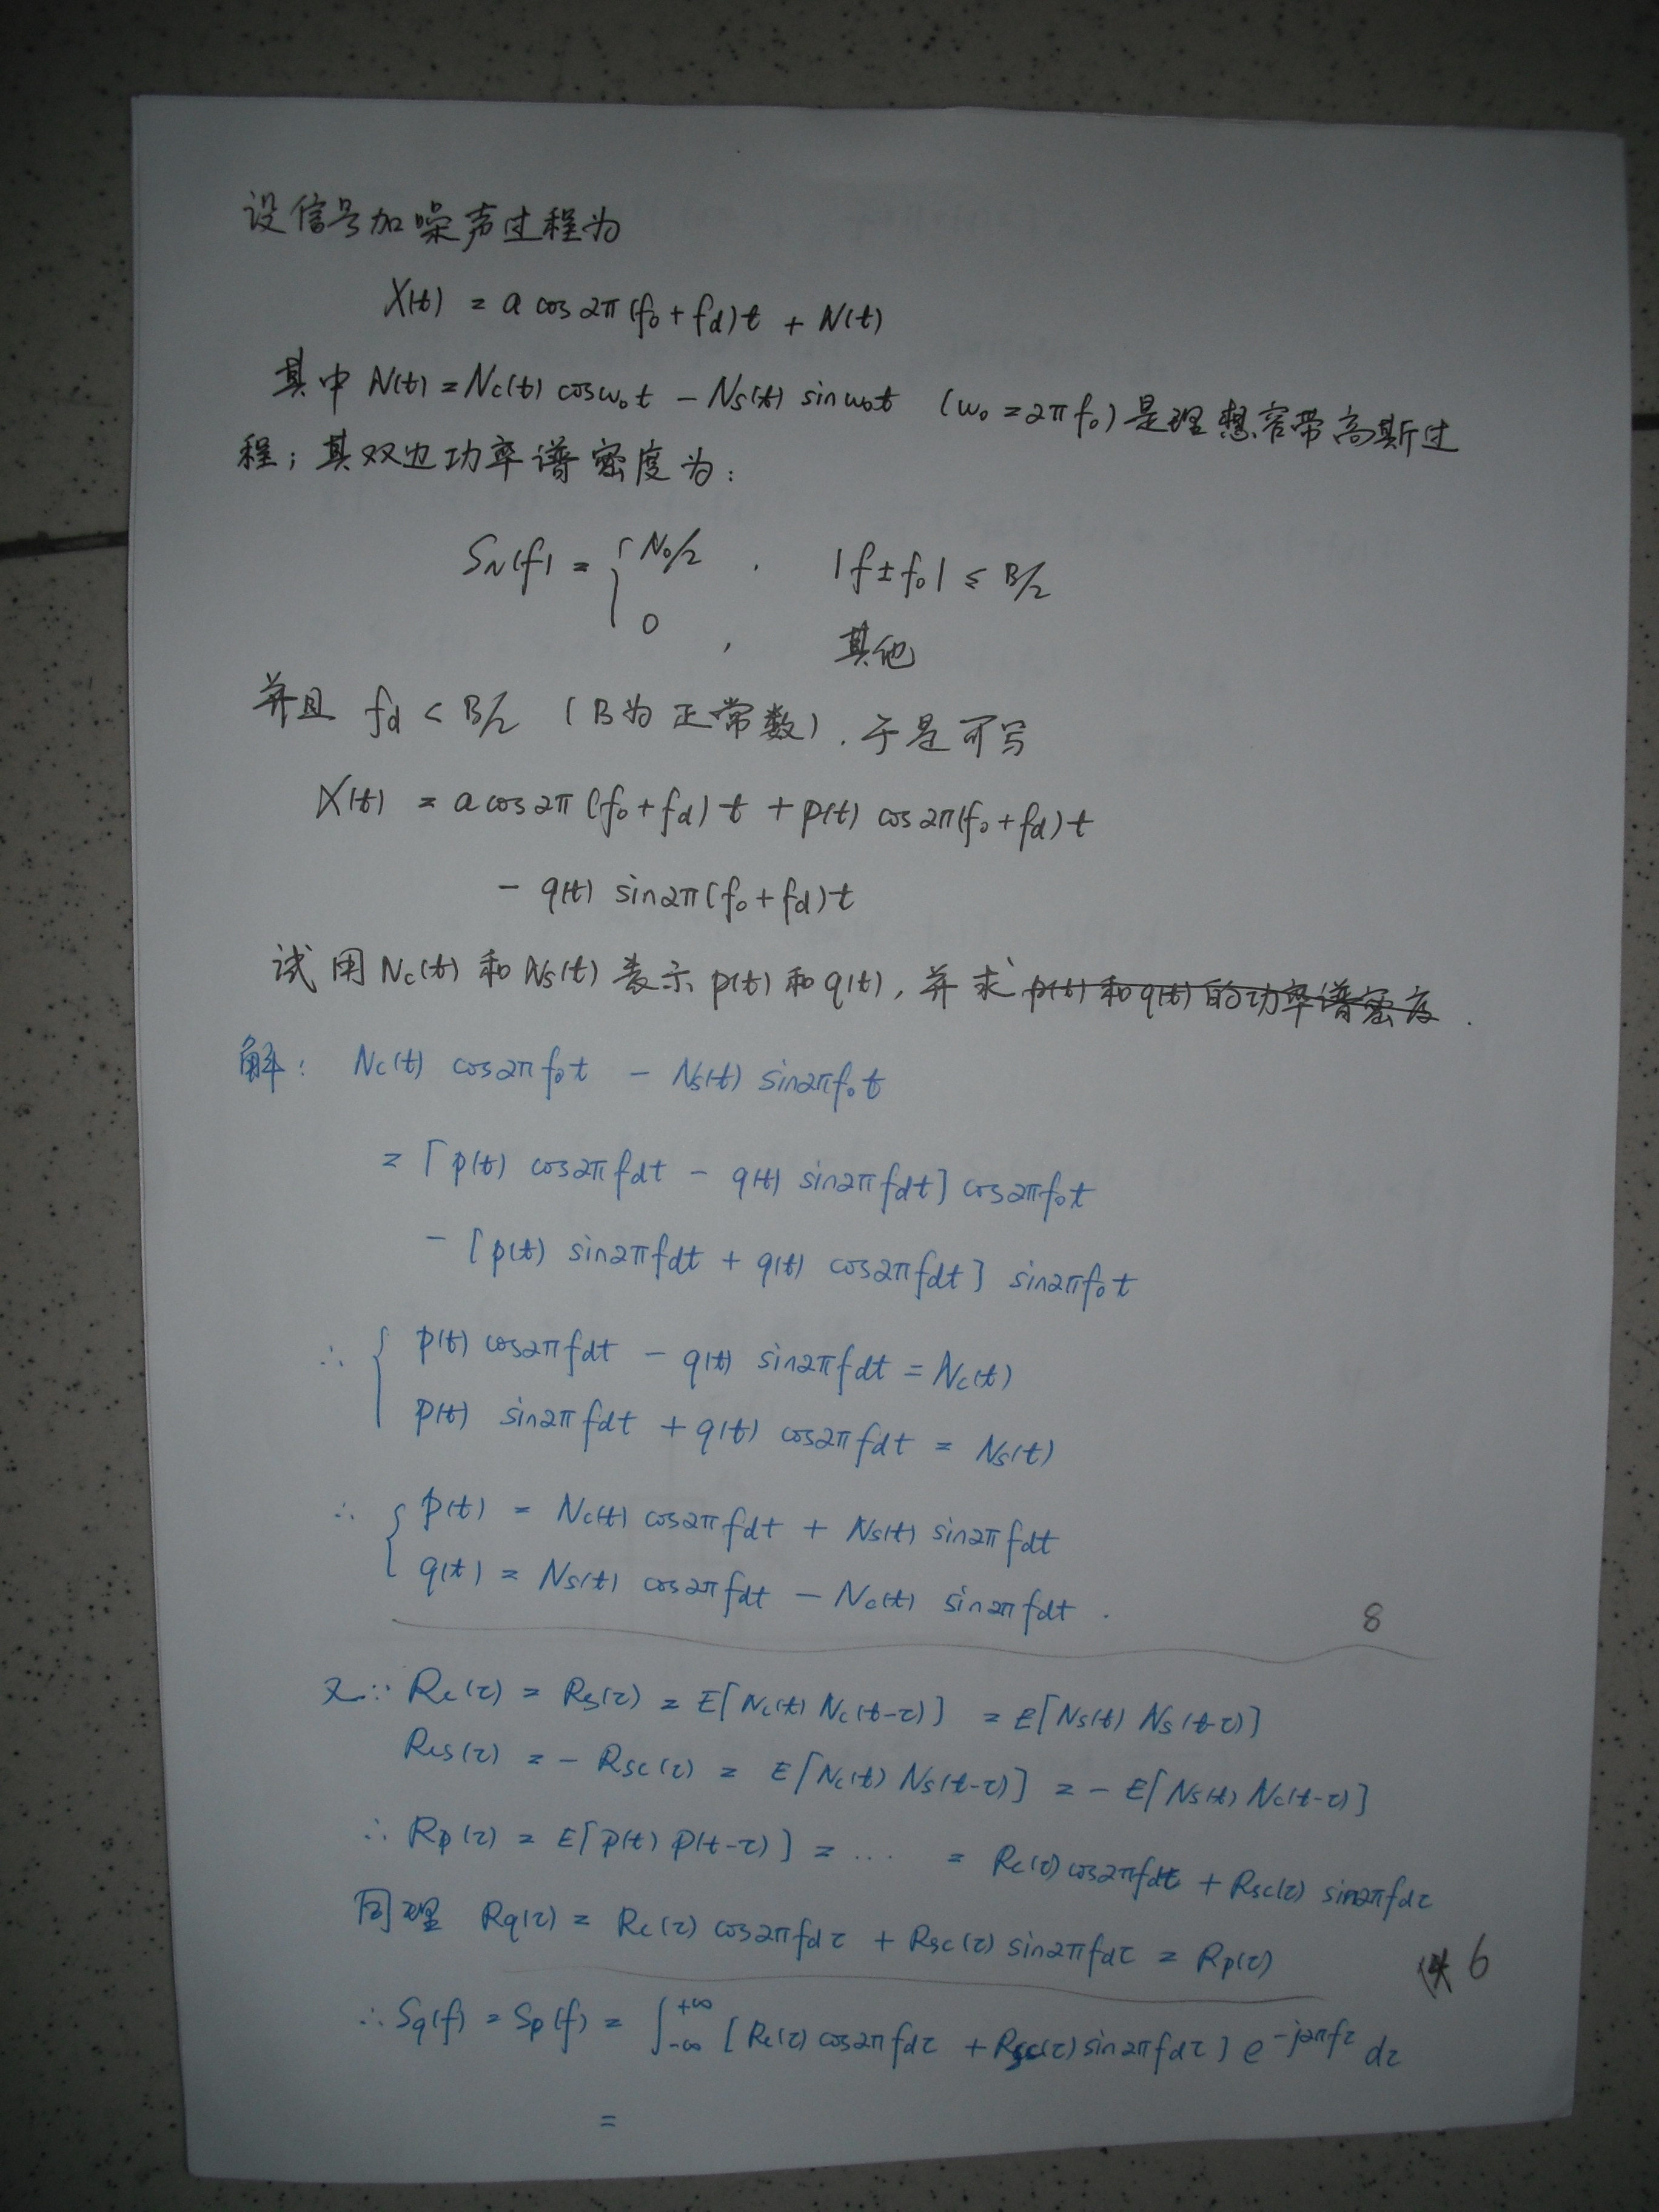 设信号加噪声过程为
X(t) = a cos2π(f₀+fd)t + N(t)
其中 N(t) = Nc(t) cosω₀t − Ns(t) sinω₀t (ω₀=2πf₀) 是理想窄带高斯过
程；其双边功率谱密度为：
S_N(f) = { N₀/2 , |f±f₀| ≤ B/2
0 , 其他
并且 fd < B/2 (B为正常数), 于是可写
X(t) = a cos2π(f₀+fd)t + p(t) cos2π(f₀+fd)t
− q(t) sin2π(f₀+fd)t
试用Nc(t) 和 Ns(t) 表示 p(t) 和 q(t), 并求 p(t) 和 q(t) 的功率谱密度.
解: Nc(t) cos2πf₀t − Ns(t) sin2πf₀t
= [p(t) cos2πfdt − q(t) sin2πfdt] cos2πf₀t
− [p(t) sin2πfdt + q(t) cos2πfdt] sin2πf₀t
∴ { p(t) cos2πfdt − q(t) sin2πfdt = Nc(t)
p(t) sin2πfdt + q(t) cos2πfdt = Ns(t)
∴ { p(t) = Nc(t) cos2πfdt + Ns(t) sin2πfdt
q(t) = Ns(t) cos2πfdt − Nc(t) sin2πfdt .
8
又∵ Rc(τ) = Rs(τ) = E[Nc(t) Nc(t−τ)] = E[Ns(t) Ns(t−τ)]
Rcs(τ) = − Rsc(τ) = E[Nc(t) Ns(t−τ)] = − E[Ns(t) Nc(t−τ)]
∴ Rp(τ) = E[p(t) p(t−τ)] = ... = Rc(τ) cos2πfdτ + Rsc(τ) sin2πfdτ
同理 Rq(τ) = Rc(τ) cos2πfdτ + Rsc(τ) sin2πfdτ = Rp(τ)
6
∴ Sq(f) = Sp(f) = ∫₋∞^{+∞} [Rc(τ) cos2πfdτ + Rsc(τ) sin2πfdτ] e^{−j2πfτ} dτ
=